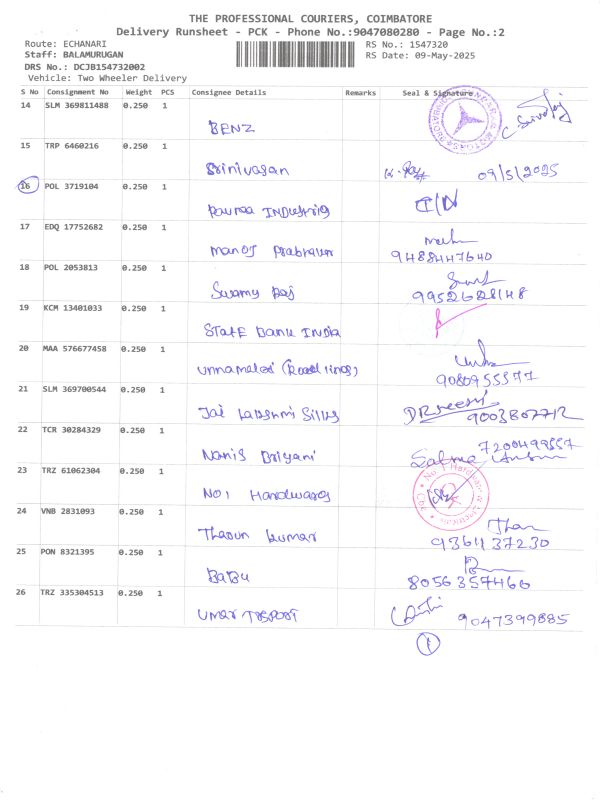 THE PROFESSIONAL COURIERS, COIMBATORE
Delivery Runsheet - PCK - Phone No.:9047080280 - Page No.:2
Route: ECHANARI
RS No.: 1547320
Staff: BALAMURUGAN
RS Date: 09-May-2025
DRS No.: DCJB154732002
Vehicle: Two Wheeler Delivery
S No Consignment No Weight PCS Consignee Details Remarks Seal & Signature
14 SLM 369811488 0.250 1
BENZ
15 TRP 6460216 0.250 1
Srinivasan 09/5/2025
16 POL 3719104 0.250 1
INDUSTRIS
17 EDQ 17752682 0.250 1
manoj Prabhakar
9488447640
18 POL 2053813 0.250 1
Swamy Raj
9952628148
19 KCM 13401033 0.250 1
STATE Bank INDIA
20 MAA 576677458 0.250 1
unnamalai (Road lines)
9080955577
21 SLM 369700544 0.250 1
Jai Lakshmi Silks 9003807712
22 TCR 30284329 0.250 1
7200499557
Nanis Briyani Salma
23 TRZ 61062304 0.250 1
No.1 Hardwares
24 VNB 2831093 0.250 1
Tharun kumar
9361137230
25 PON 8321395 0.250 1
BaBu
8056357466
26 TRZ 335304513 0.250 1
umar TRSPORT 9047399885
1